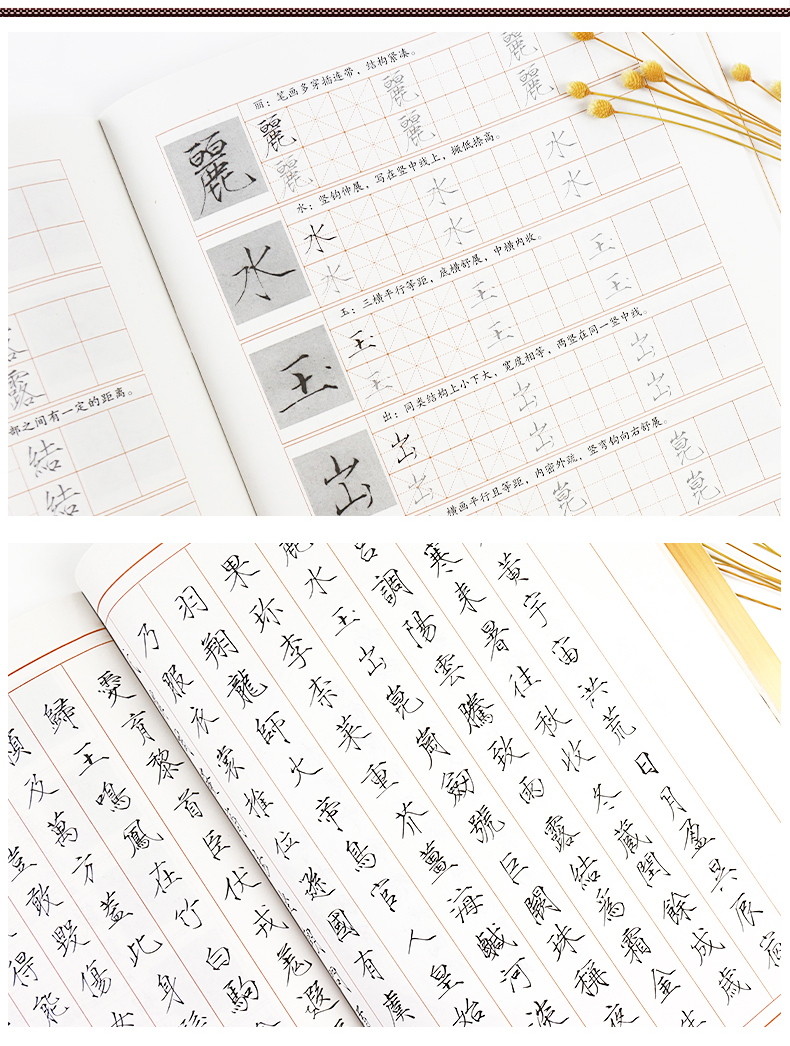 丽：笔画多穿插连带，结构紧凑。
麗 麗 麗 麗
麗 麗 麗
水：竖钩伸展，写在竖中线上，撇低捺高。
水 水 水 水
水 水 水
玉：三横平行等距，底横舒展，中横内收。
玉 玉 玉 玉
玉 玉 玉
出：同类结构上小下大，宽度相等，两竖在同一竖中线。
出 出 出 出
出 出 出
横画平行且等距，内密外疏，竖弯钩向右舒展。
崑 崑
崑 崑
露
部之间有一定的距离。
結
結
黃宇宙洪荒日月盈昃辰宿
寒来暑往秋收冬藏閏餘成歲
吕調陽雲騰致雨露結為霜金生
麗水玉出崑崗劍號巨闕珠稱夜
果珍李柰菜重芥薑海鹹河淡
羽翔龍師火帝鳥官人皇始
乃服衣裳推位遜國有虞
愛育黎首臣伏戎羌遐
歸王鳴鳳在竹白駒
賴及萬方蓋此身髮
豈敢毀傷女
得能